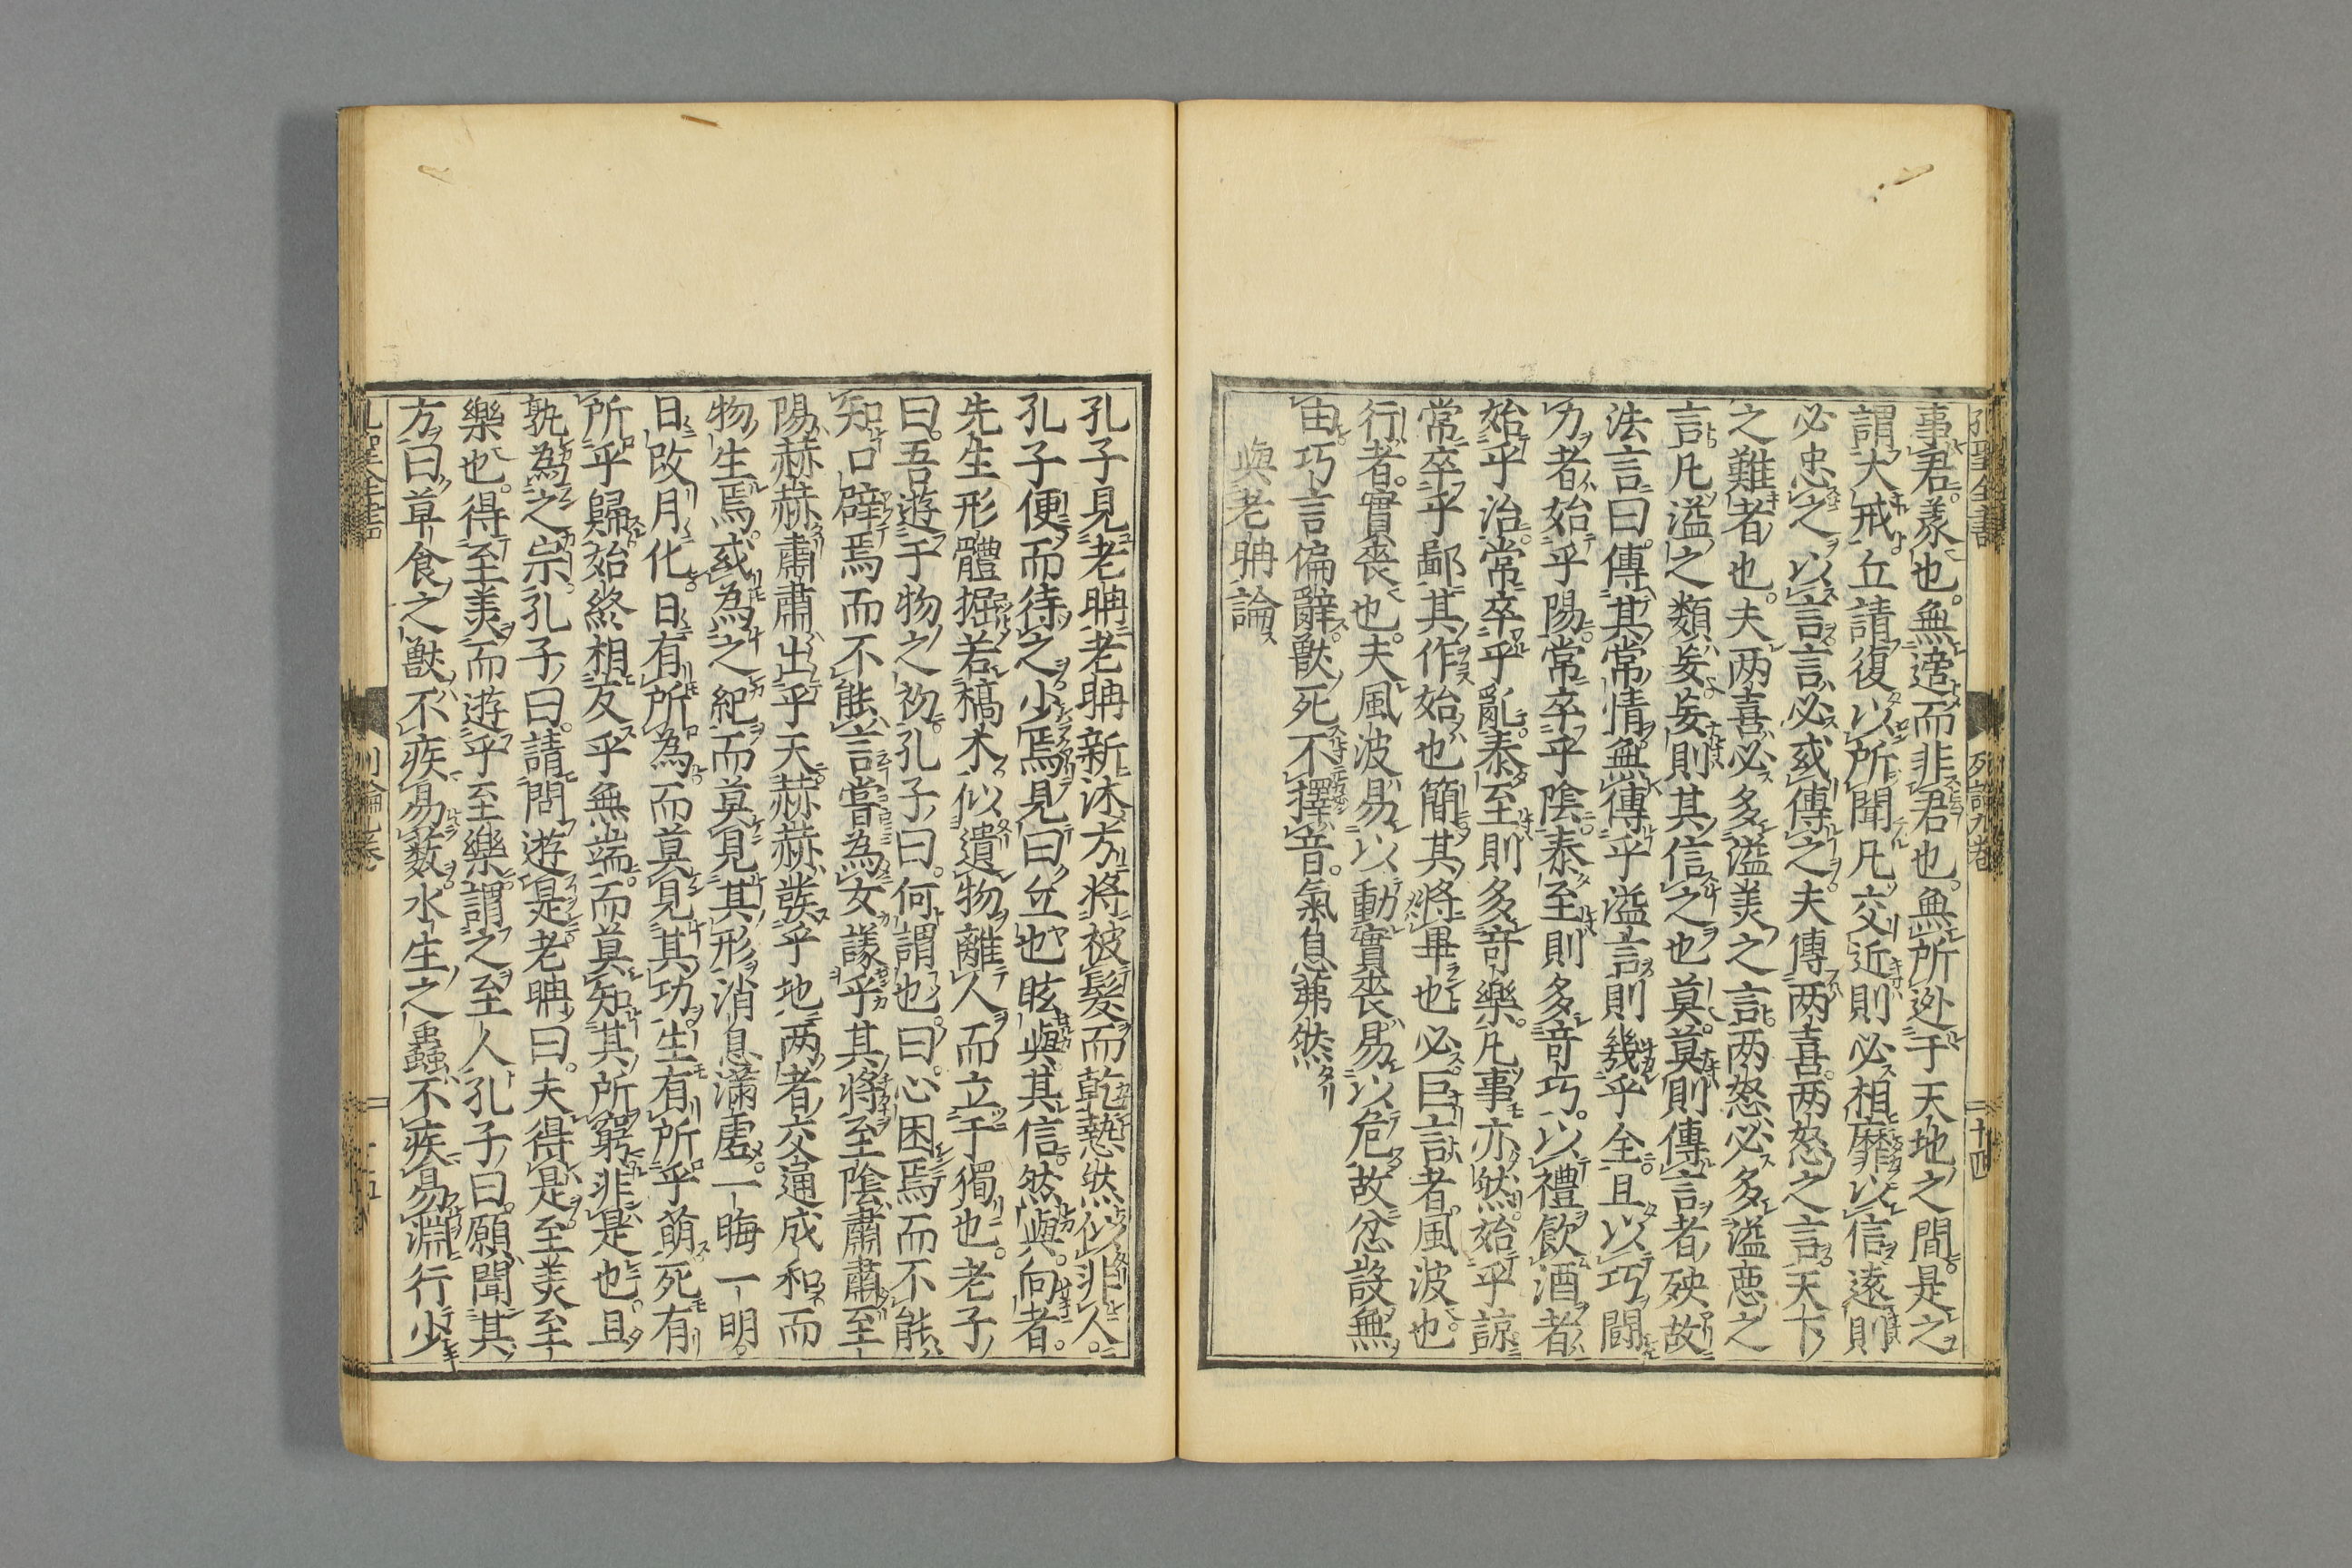 孔聖全書
列論九卷
二十四
事君義也無適而非君也無所逃于天地之間是之
謂大戒丘請復以所聞凡交近則必相靡以信遠則
必忠之以言言必或傳之夫傳两喜两怒之言天下
之難者也夫两喜必多溢美之言两怒必多溢惡之
言凡溢之類妄妄則其信之也莫莫則傳言者殃故
法言曰傳其常情無傳乎溢言則幾乎全且以巧鬪
力者始乎陽常卒乎陰泰至則多竒巧以禮飲酒者
始乎治常卒乎亂泰至則多竒樂凡事亦然始乎諒
常卒乎鄙其作始也簡其將畢也必巨言者風波也
行者實喪也夫風波易以動實喪易以危故忿設無
由巧言偏辭獸死不擇音氣息茀然
與老聃論
孔子見老聃老聃新沐方將被髮而乾慹然似非人
孔子便而待之少焉見曰丘也眩與其信然與向者
先生形體掘若槁木似遺物離人而立于獨也老子
曰吾遊于物之初孔子曰何謂也曰心困焉而不能
知口辟焉而不能言嘗為女議乎其將至陰肅肅至
陽赫赫肅肅出乎天赫赫發乎地两者交通成和而
物生焉或為之紀而莫見其形消息滿虛一晦一明
日改月化日有所為而莫見其功生有所乎萌死有
所乎歸始終相反乎無端而莫知其所窮非是也且
孰為之宗孔子曰請問遊是老聃曰夫得是至美至
樂也得至美而遊乎至樂謂之至人孔子曰願聞其
方曰草食之獸不疾易藪水生之蟲不疾易淵行少
孔聖全書